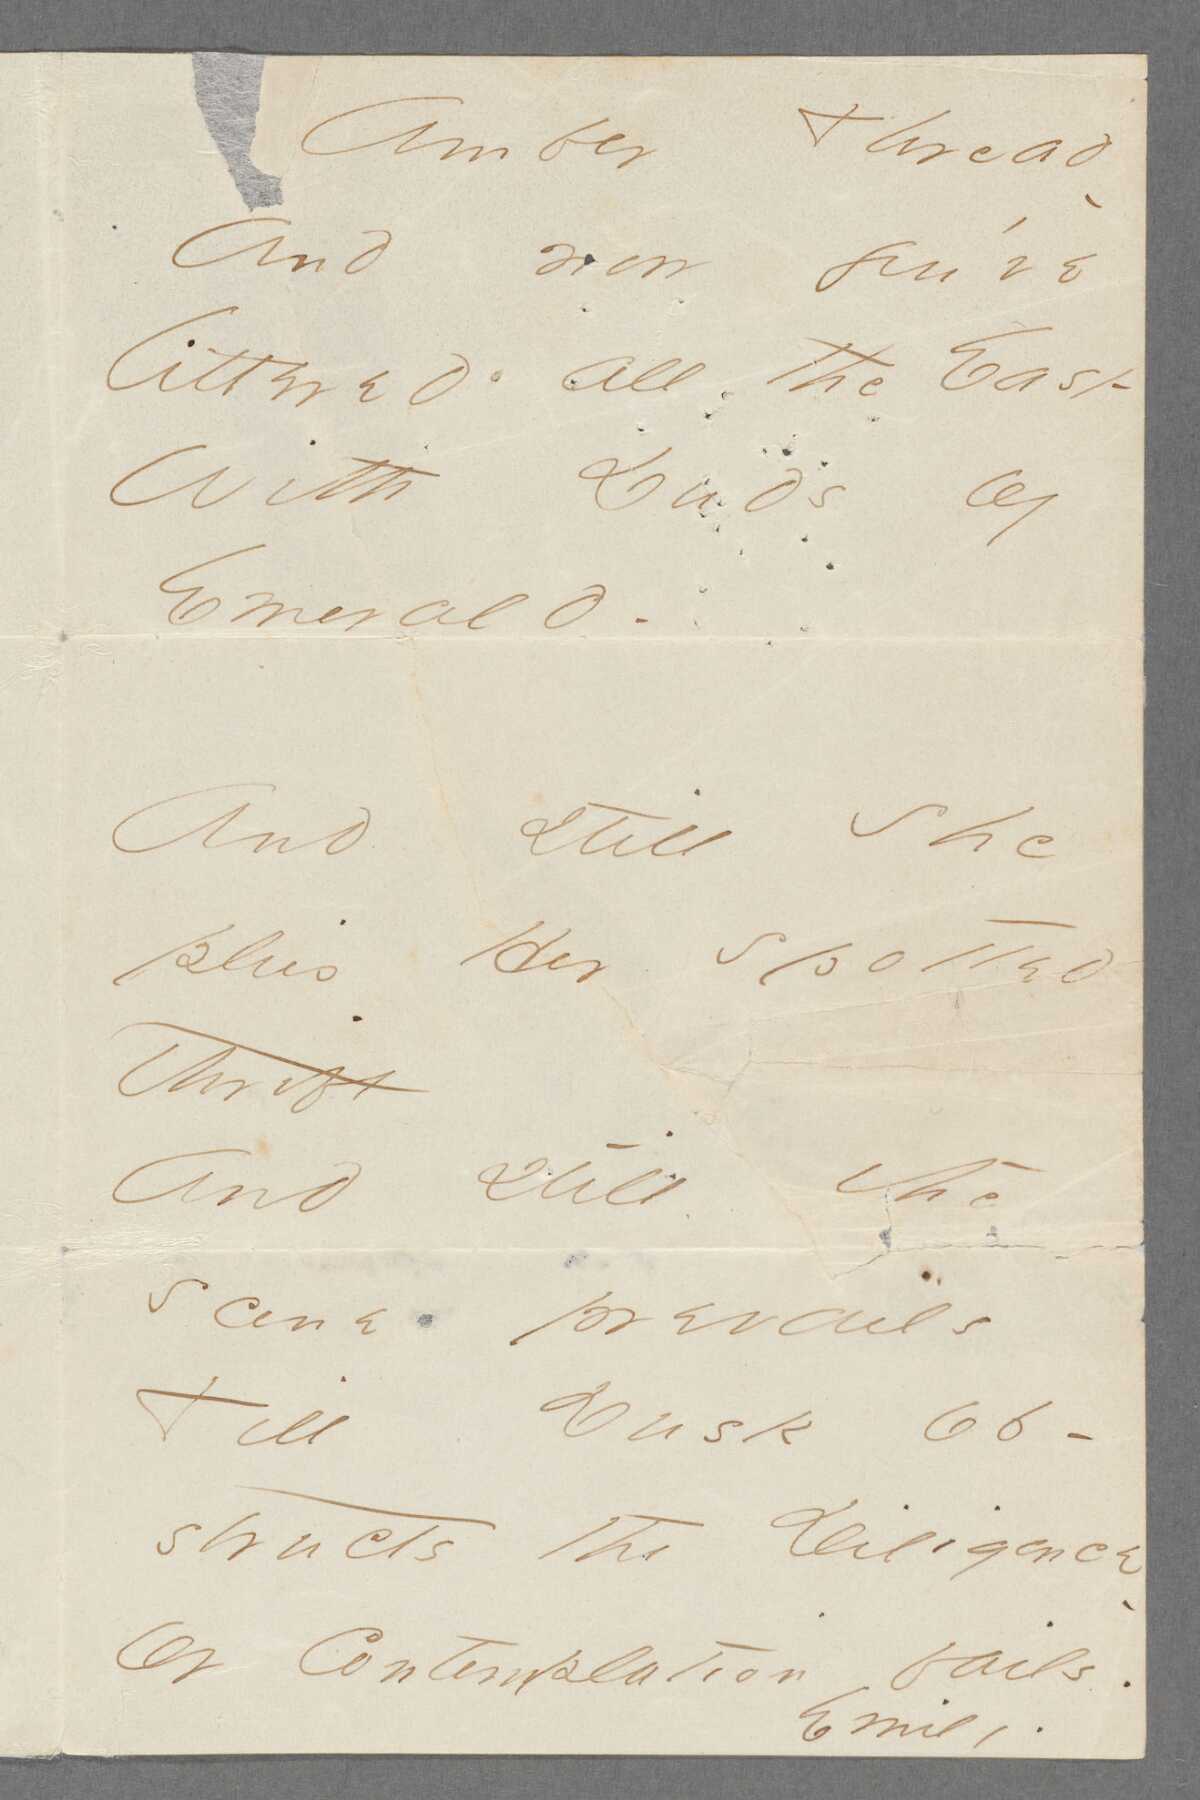 Amber Thread -
And now you've
littered all the East
With Duds of
Emerald -
And still She
plies Her spotted
Thrift
And still the
scene prevails
Till Dusk ob-
structs the Diligence -
Or Contemplation fails.
Emily.